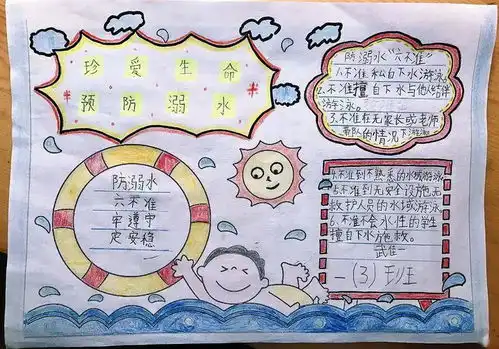 珍爱生命
预防溺水
防溺水"六不准"
1.不准私自下水游泳
2.不准擅自下水与他人结伴
游泳。
3.不准在无家长或老师
带队的情况下游泳
防溺水
六不准
牢遵守
定安稳
4.不准到不熟悉的水域游泳
5.不准到无安全设施,无
救护人员的水域游泳
6.不准不会水性的学生
擅自下水施救。
一(3)班